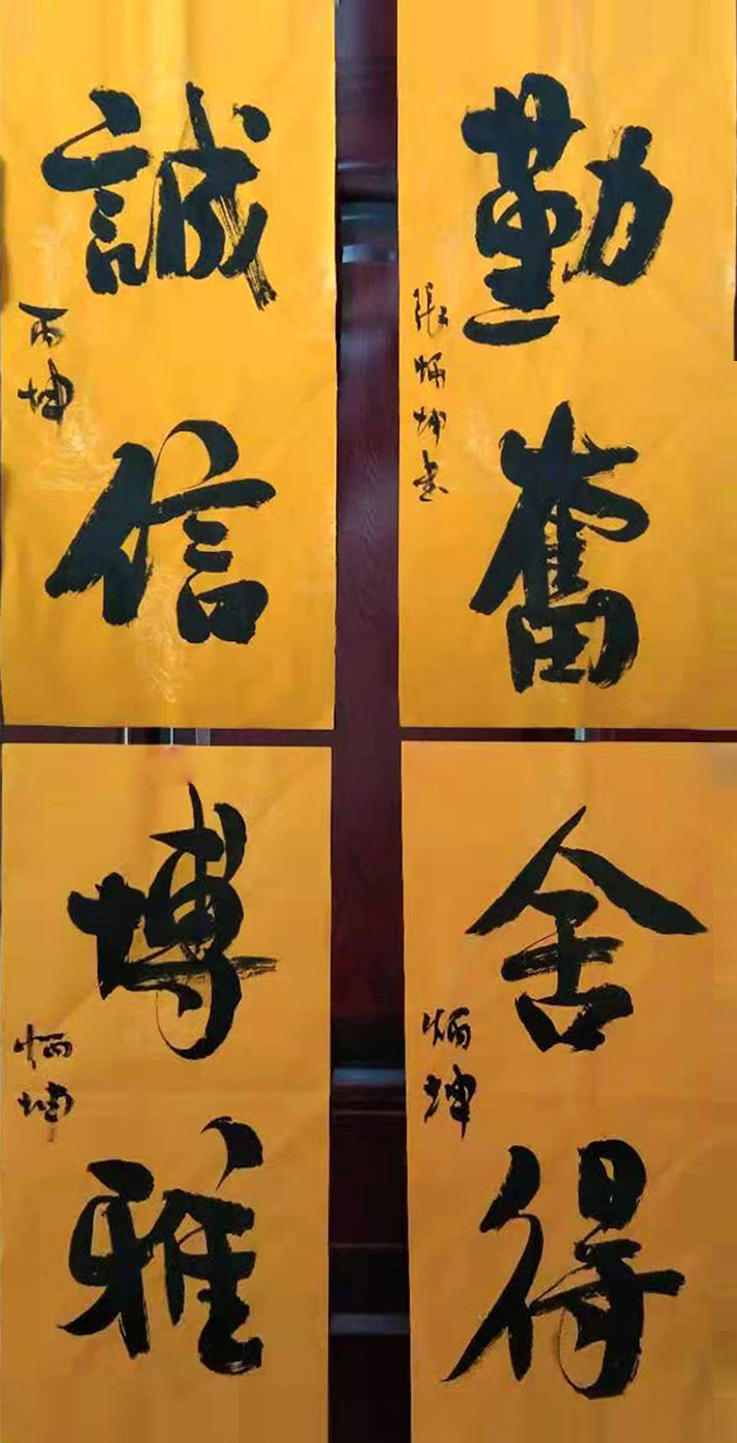 勤奮
張炳坤書
誠信
丙坤
舍得
炳坤
博雅
炳坤